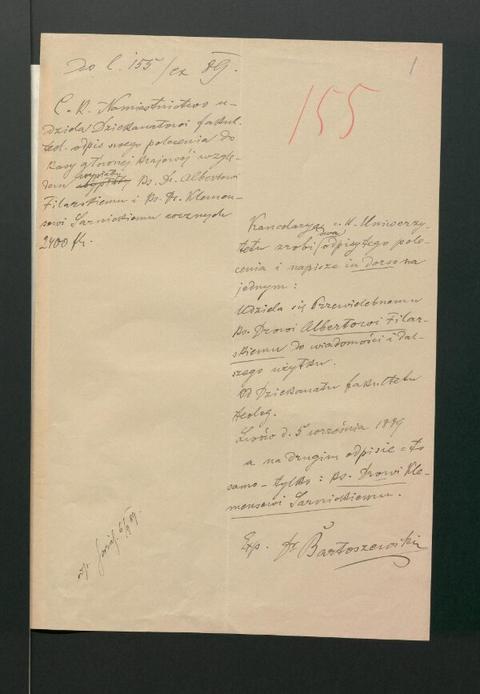 Do l. 155/ex 89.
C. K. Namiestnictwo u-
dziela Dziekanatowi fakul.
teol. odpis swego polecenia do
kasy głównej krajowej wzglę-
dem wypłaty ks. Dr. Albertowi
Filarskiemu i ks. Dr. Klemen-
sowi Sarnickiemu rocznych
2400 fl.
1
155
Kancelarya c. k. Uniwerzy-
tetu zrobi dwa odpisy tego pole-
cenia i napisze in dorso na
jednym:
Udziela się Przewielebnemu
ks. Drowi Albertowi Filar-
skiemu do wiadomości i dal-
szego użytku.
Od Dziekanatu fakultetu
teolog.
Lwów d. 5 września 1889
a na drugim odpisie - to
samo - tylko: ks. Drowi Kle-
mensowi Sarnickiemu.
Exp. Dr Bartoszewski